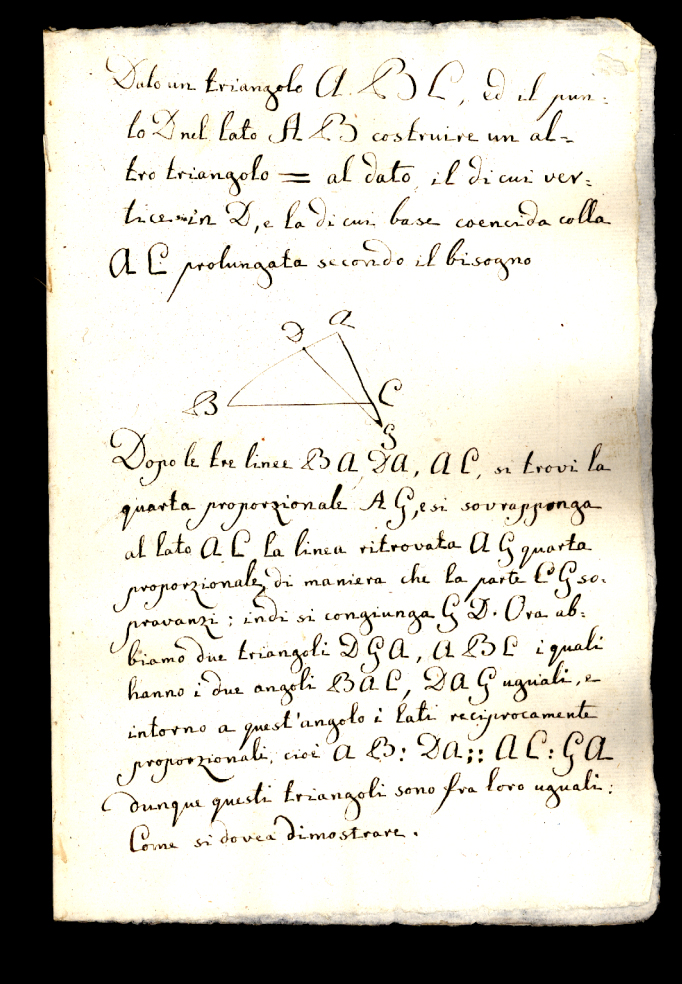 Dato un triangolo A. B C, ed il pun-
to D nel lato A B costruire un al-
tro triangolo = al dato, il di cui ver-
tice in D, e la di cui base coencida colla
A C prolungata secondo il bisogno
D A
B C
G
Dopo le tre linee B A, D A, A C, si trovi la
quarta proporzionale A G, e si sovrapponga
al lato A C la linea ritrovata A G quarta
proporzionale, di maniera che la parte C G so-
pravanzi; indi si congiunga G D. Ora ab-
biamo due triangoli D G A, A B C i quali
hanno i due angoli B A C, D A G uguali, e
intorno a quest'angolo i lati reciprocamente
proporzionali, cioè A B: D A :: A C: G A
dunque questi triangoli sono fra loro uguali:
Come si dovea dimostrare.